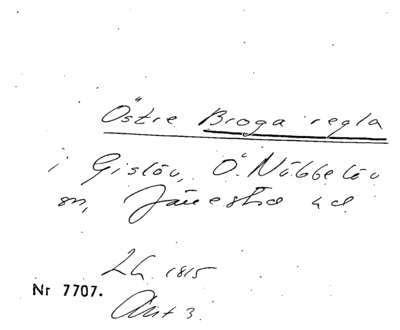 Östre Broga regla
i Gislöv, Ö. Nöbbelöv
sn, Järrestad hd
LA 1815
Nr 7707.
Akt 3.